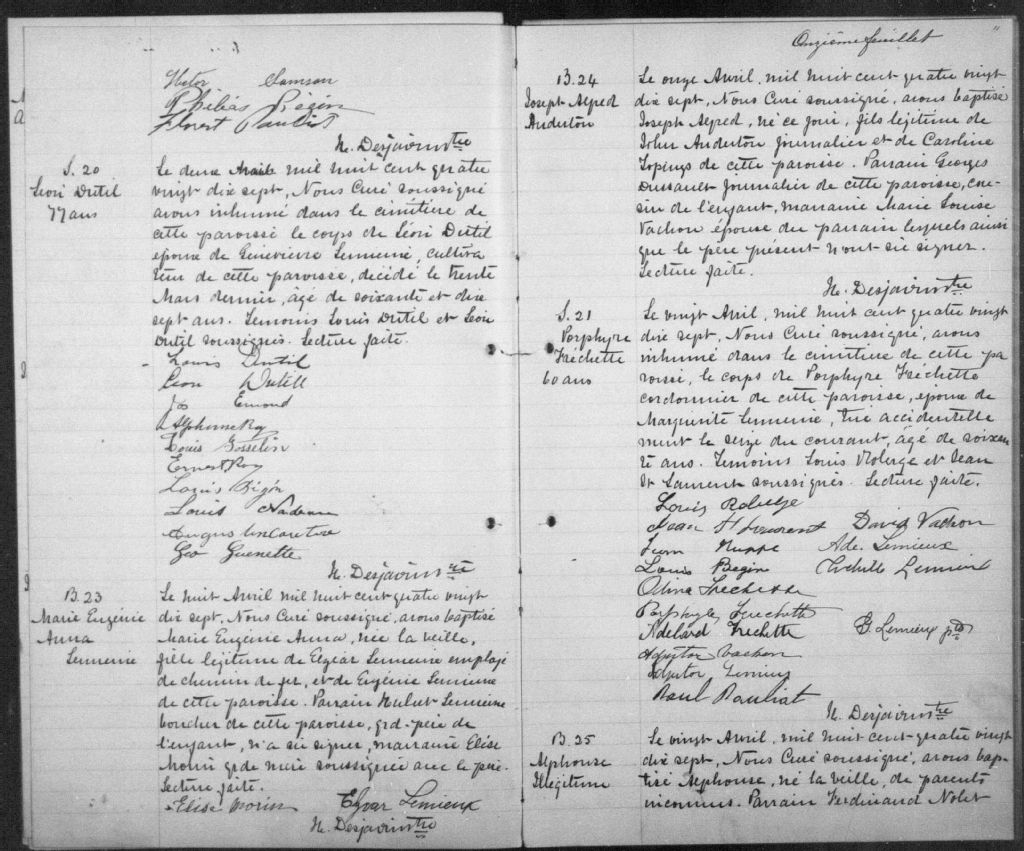 Victor Samson
Philias Bégin
Ernest Pauliot
N. Desjardins ptre
S. 20
Léon Dutil
77 ans
Le deux Avril mil huit cent quatre
vingt dix sept, Nous Curé soussigné
avons inhumé dans le cimetière de
cette paroisse le corps de Léon Dutil
époux de Geneviève Lemieux, cultiva
teur de cette paroisse, décédé le trente
Mars dernier, âgé de soixante et dix
sept ans. Temoins Louis Dutil et Léon
Dutil soussignés. Lecture faite.
Louis Dutil
Léon Dutill
Jos Emond
Alphonse Roy
Louis Gosselin
Ernest Roy
Louis Bégin
Louis Nadeau
Geo Guenette
N. Desjardins ptre
B. 23
Marie Eugénie
Anna
Lemieux
Le huit Avril mil huit cent quatre vingt
dix sept, Nous Curé soussigné, avons baptisé
Marie Eugénie Anna, née la veille,
fille légitime de Elzéar Lemieux employé
de chemin de fer, et de Eugénie Lemieux
de cette paroisse. Parrain Hubert Lemieux
boucher de cette paroisse, grd-père de
l'enfant, n'a su signer, marraine Elise
Morin grde mère soussignée avec le père.
Lecture faite.
Elise Morin Elzear Lemieux
N. Desjardins ptre
Onzième feuillet
B. 24
Joseph Alfred
Anderton
Le onze Avril, mil huit cent quatre vingt
dix sept, Nous Curé soussigné, avons baptisé
Joseph Alfred, né ce jour, fils légitime de
John Anderton journalier et de Caroline
de cette paroisse. Parrain Georges
Dussault journalier de cette paroisse, cou-
sin de l'enfant, marraine Marie Louise
Vachon épouse du parrain lesquels ainsi
que le père présent n'ont su signer.
Lecture faite.
N. Desjardins ptre
S. 21
Porphyre
Fréchette
60 ans
Le vingt Avril, mil huit cent quatre vingt
dix sept, Nous Curé soussigné, avons
inhumé dans le cimetière de cette pa
roisse, le corps de Porphyre Fréchette
cordonnier de cette paroisse, époux de
Marguerite Lemieux, tué accidentelle
ment le seize du courant, âgé de soixan
te ans. Temoins Louis Roberge et Jean
St Laurent soussignés. Lecture faite.
Louis Roberge
Jean St Laurent David Vachon
Ade. Lemieux
Louis Begin Achille Lemieux
Olivier Frechette
Porphyre Frechette
Adelard Frechette G. Lemieux ptre
Adjutor Vachon
Adjutor Lemieux
Raul Rauliot
N. Desjardins ptre
B. 25
Alphonse
Illégitime
Le vingt Avril, mil huit cent quatre vingt
dix sept, Nous Curé soussigné, avons bap-
tisé Alphonse, né la veille, de parents
inconnus. Parrain Ferdinand Nolet